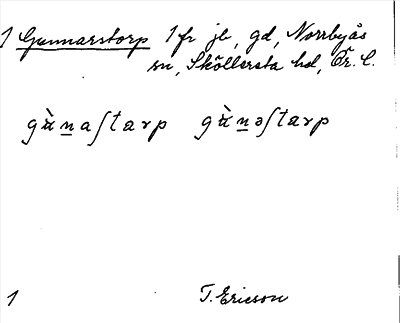 1 Gunnarstorp 1 fr jb, gd, Norrbyås
sn, Sköllersta hd, Ör. l.
gu̇̀n̲aſtarp gu̇̀n̲əſtarp
1 T. Ericson